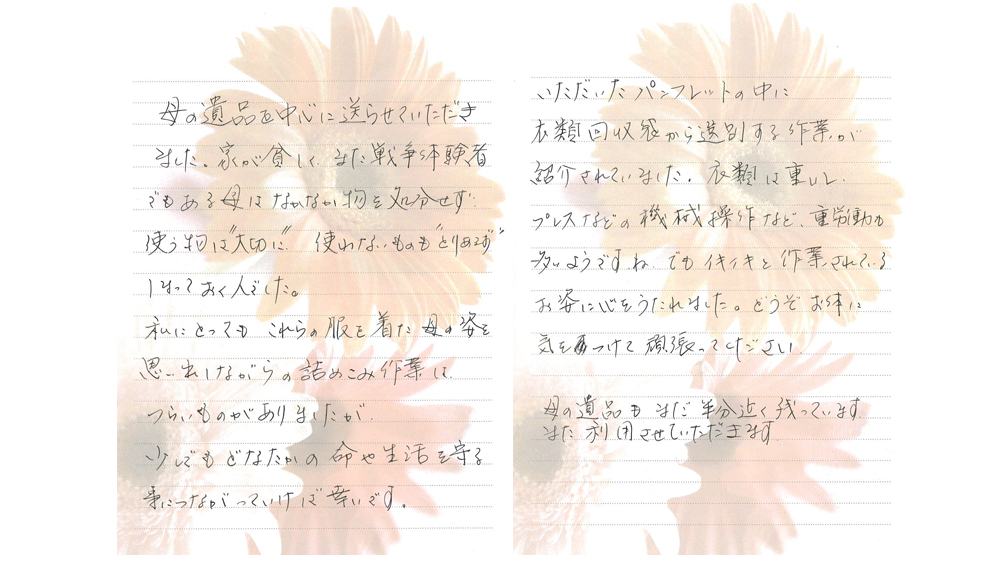 母の遺品を中心に送らせていただき
ました。家が貧しく、また戦争体験者
でもある母はなかなか物を処分せず
使う物は"大切に" 使わないものも"とりあえず"
しまっておく人でした。
私にとっても これらの服を着た母の姿を
思い出しながらの詰めこみ作業は
つらいものがありましたが
少しでもどなたかの命や生活を守る
事につながっていけば幸いです。
いただいたパンフレットの中に
衣類回収袋から選別する作業が
紹介されていました。衣類は重いし
プレスなどの機械操作など、重労働も
多いようですね でもイキイキと作業されている
お姿に心をうたれました。どうぞお体に
気をつけて頑張ってください
母の遺品もまだ半分近く残っています
また利用させていただきます